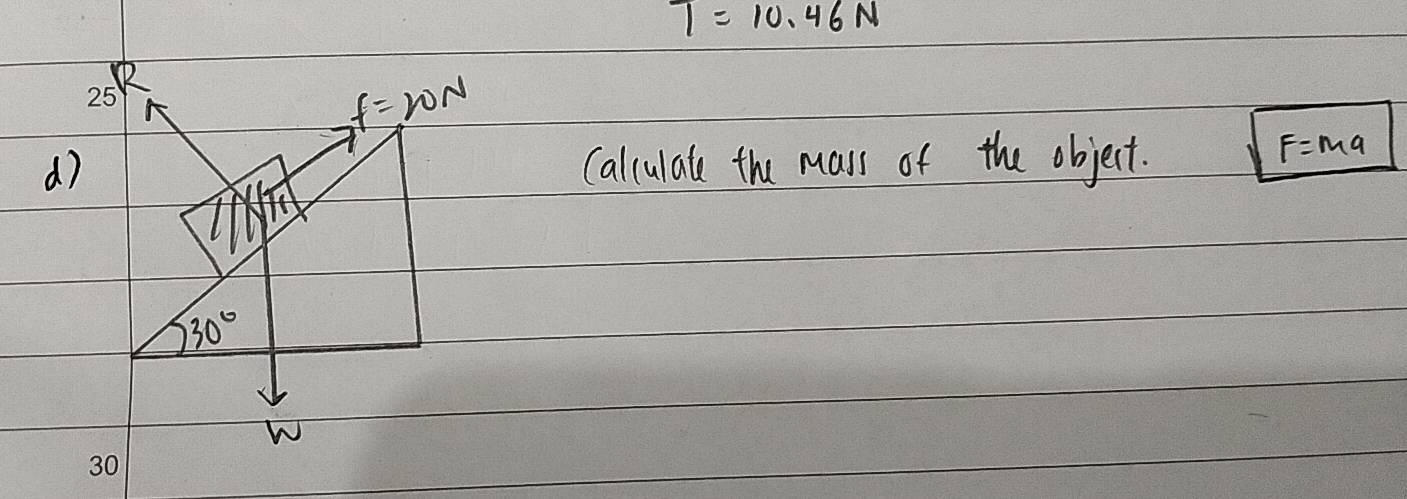 T = 10.46 N
25
R
f = 20N
d)
Calculate the mass of the object.
F=ma
30°
W
30